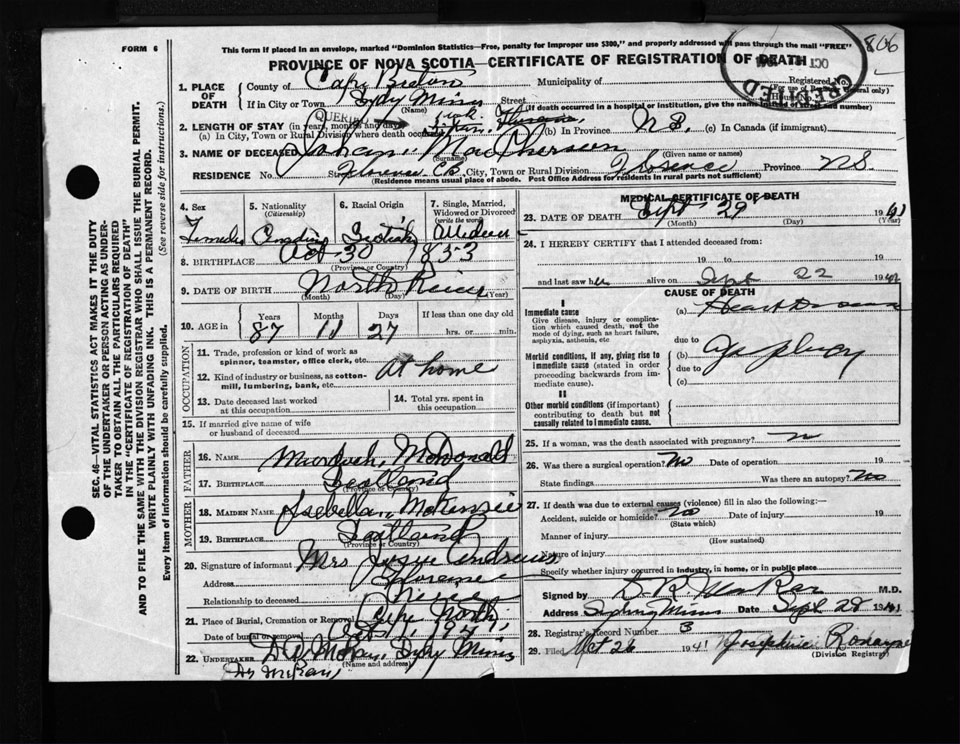 FORM 6
This form if placed in an envelope, marked "Dominion Statistics—Free, penalty for improper use $300," and properly addressed will pass through the mail "FREE"
806
PROVINCE OF NOVA SCOTIA—CERTIFICATE OF REGISTRATION OF DEATH
OCT
1. PLACE OF DEATH
County of Cape Breton Municipality of Registered No.
If in City or Town Sydney Mines Street
(Name) (If death occurred in a hospital or institution, give the name instead of street and number)
QUERIED
2. LENGTH OF STAY (in years, months and days)
(a) In City, Town or Rural Division where death occurred (b) In Province N.S. (c) In Canada (if immigrant)
3. NAME OF DECEASED MacPherson
(Surname) (Given name or names)
RESIDENCE No. St. Florence C.B. City, Town or Rural Division Florence Province N.S.
(Residence means usual place of abode. Post Office Address for residents in rural parts not sufficient)
4. Sex
5. Nationality (Citizenship)
6. Racial Origin
7. Single, Married, Widowed or Divorced (write the word)
Female Canadian Scotish Widow
8. BIRTHPLACE Oct 30 1853
(Province or Country)
9. DATE OF BIRTH North River
(Month) (Day) (Year)
10. AGE in Years Months Days If less than one day old
87 11 27 hrs. or min.
OCCUPATION
11. Trade, profession or kind of work as spinner, teamster, office clerk, etc. At home
12. Kind of industry or business, as cotton-mill, lumbering, bank, etc.
13. Date deceased last worked at this occupation
14. Total yrs. spent in this occupation
15. If married give name of wife or husband of deceased
FATHER
16. NAME Murdoch McDonald
17. BIRTHPLACE Scotland
(Province or Country)
MOTHER
18. MAIDEN NAME Isabella McKenzie
19. BIRTHPLACE Scotland
(Province or Country)
20. Signature of informant Mrs Andrews
Address Florence
Relationship to deceased Niece
21. Place of Burial, Cremation or Removal Cape North
Date of burial or removal Oct 1, 1941
22. UNDERTAKER Syd Mines
(Name and address)
MEDICAL CERTIFICATE OF DEATH
23. DATE OF DEATH Sept 29 1941
(Month) (Day) (Year)
24. I HEREBY CERTIFY that I attended deceased from
19 to 19
and last saw her alive on Sept 22 1941
CAUSE OF DEATH
I
Immediate cause
Give disease, injury or complication which caused death, not the mode of dying, such as heart failure, asphyxia, asthenia, etc
(a) Heart Disease
due to
Morbid conditions, if any, giving rise to immediate cause (stated in order proceeding backwards from immediate cause).
(b)
due to
(c)
II
Other morbid conditions (if important) contributing to death but not causally related to immediate cause.
25. If a woman, was the death associated with pregnancy? no
26. Was there a surgical operation? No Date of operation 19
State findings Was there an autopsy? No
27. If death was due to external causes (violence) fill in also the following:—
Accident, suicide or homicide? no Date of injury 19
(State which)
Manner of injury
(How sustained)
Nature of injury
Specify whether injury occurred in industry, in home, or in public place
Signed by M.D.
Address Sydney Mines Date Sept 28 1941
28. Registrar's Record Number 3
29. Filed Oct 26 1941 Josephine
(Division Registrar)
SEC. 46—VITAL STATISTICS ACT MAKES IT THE DUTY
OF THE UNDERTAKER OR PERSON ACTING AS UNDER-
TAKER TO OBTAIN ALL THE PARTICULARS REQUIRED
IN THE "CERTIFICATE OF REGISTRATION OF DEATH"
AND TO FILE THE SAME WITH THE DIVISION REGISTRAR WHO SHALL ISSUE THE BURIAL PERMIT.
WRITE PLAINLY WITH UNFADING INK. THIS IS A PERMANENT RECORD.
Every item of information should be carefully supplied. (See reverse side for instructions.)